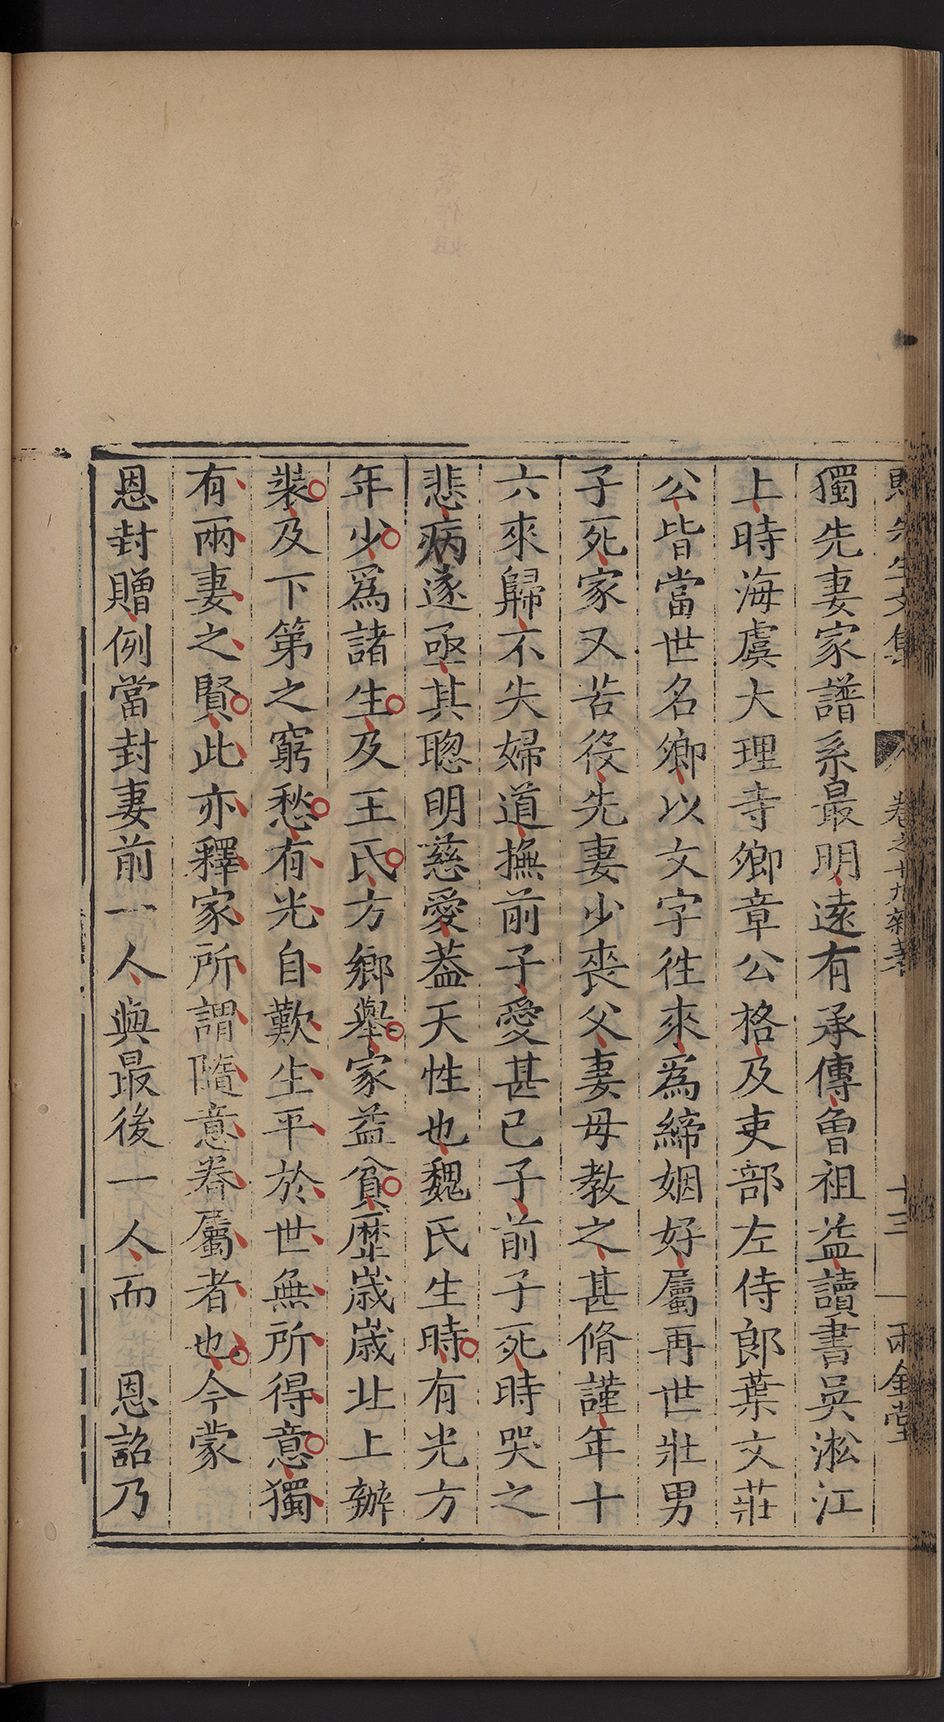 獨先妻家譜系最明遠有承傳曾祖益讀書吳淞江
上時海虞大理寺卿章公格及吏部左侍郎葉文莊
公皆當世名卿以文字徃來爲締姻好屬再世壯男
子死家又苦役先妻少喪父妻母教之甚脩謹年十
六來歸不失婦道撫前子愛甚已子前子死時哭之
悲病遂亟其聦明慈愛葢天性也魏氏生時有光方
年少爲諸生及王氏方鄉舉家益貧歷歲歲北上辦
裝及下第之窮愁有光自歎生平於世無所得意獨
有兩妻之賢此亦釋家所謂隨意眷屬者也今蒙
恩封贈例當封妻前一人與最後一人而　恩詔乃
卷之十九雜著
十三
雨金堂